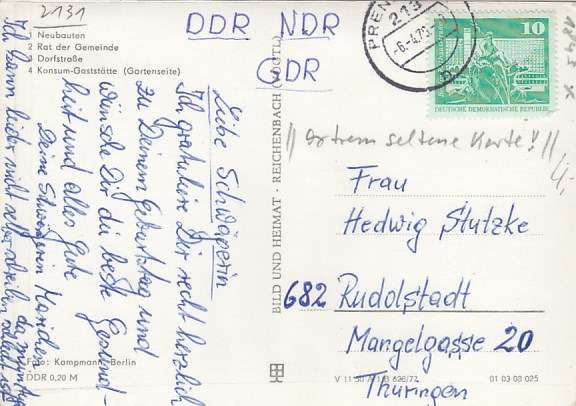 2131
1 Neubauten
2 Rat der Gemeinde
3 Dorfstraße
4 Konsum-Gaststätte (Gartenseite)
DDR NDR
GDR
Liebe Schwägerin
Ich gratuliere Dir recht herzlich
zu Deinem Geburtstag und
wünsche Dir die beste Gesund-
heit und alles Gute
Deine Schwägerin
Ich kann leider nicht selbst schreiben
BILD UND HEIMAT · REICHENBACH (VOGTL)
PRENZ
213
-6.-4.78
10
DEUTSCHE DEMOKRATISCHE REPUBLIK
// extrem seltene Karte! //
4,-
Frau
Hedwig Stutzke
682 Rudolstadt
Mangelgasse 20
Thüringen
Foto: Kampmann, Berlin
DDR 0,20 M
01 03 08 025